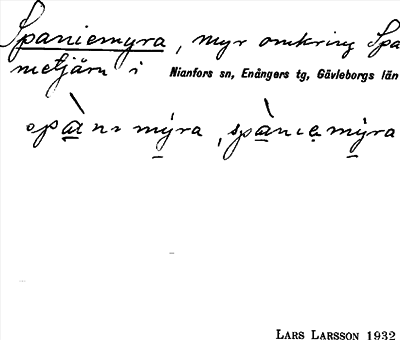 Spaniemyra, myr omkring Spa
metjärn i Nianfors sn, Enångers tg, Gävleborgs län
spànı mýra, spànıe̥ mýra
LARS LARSSON 1932